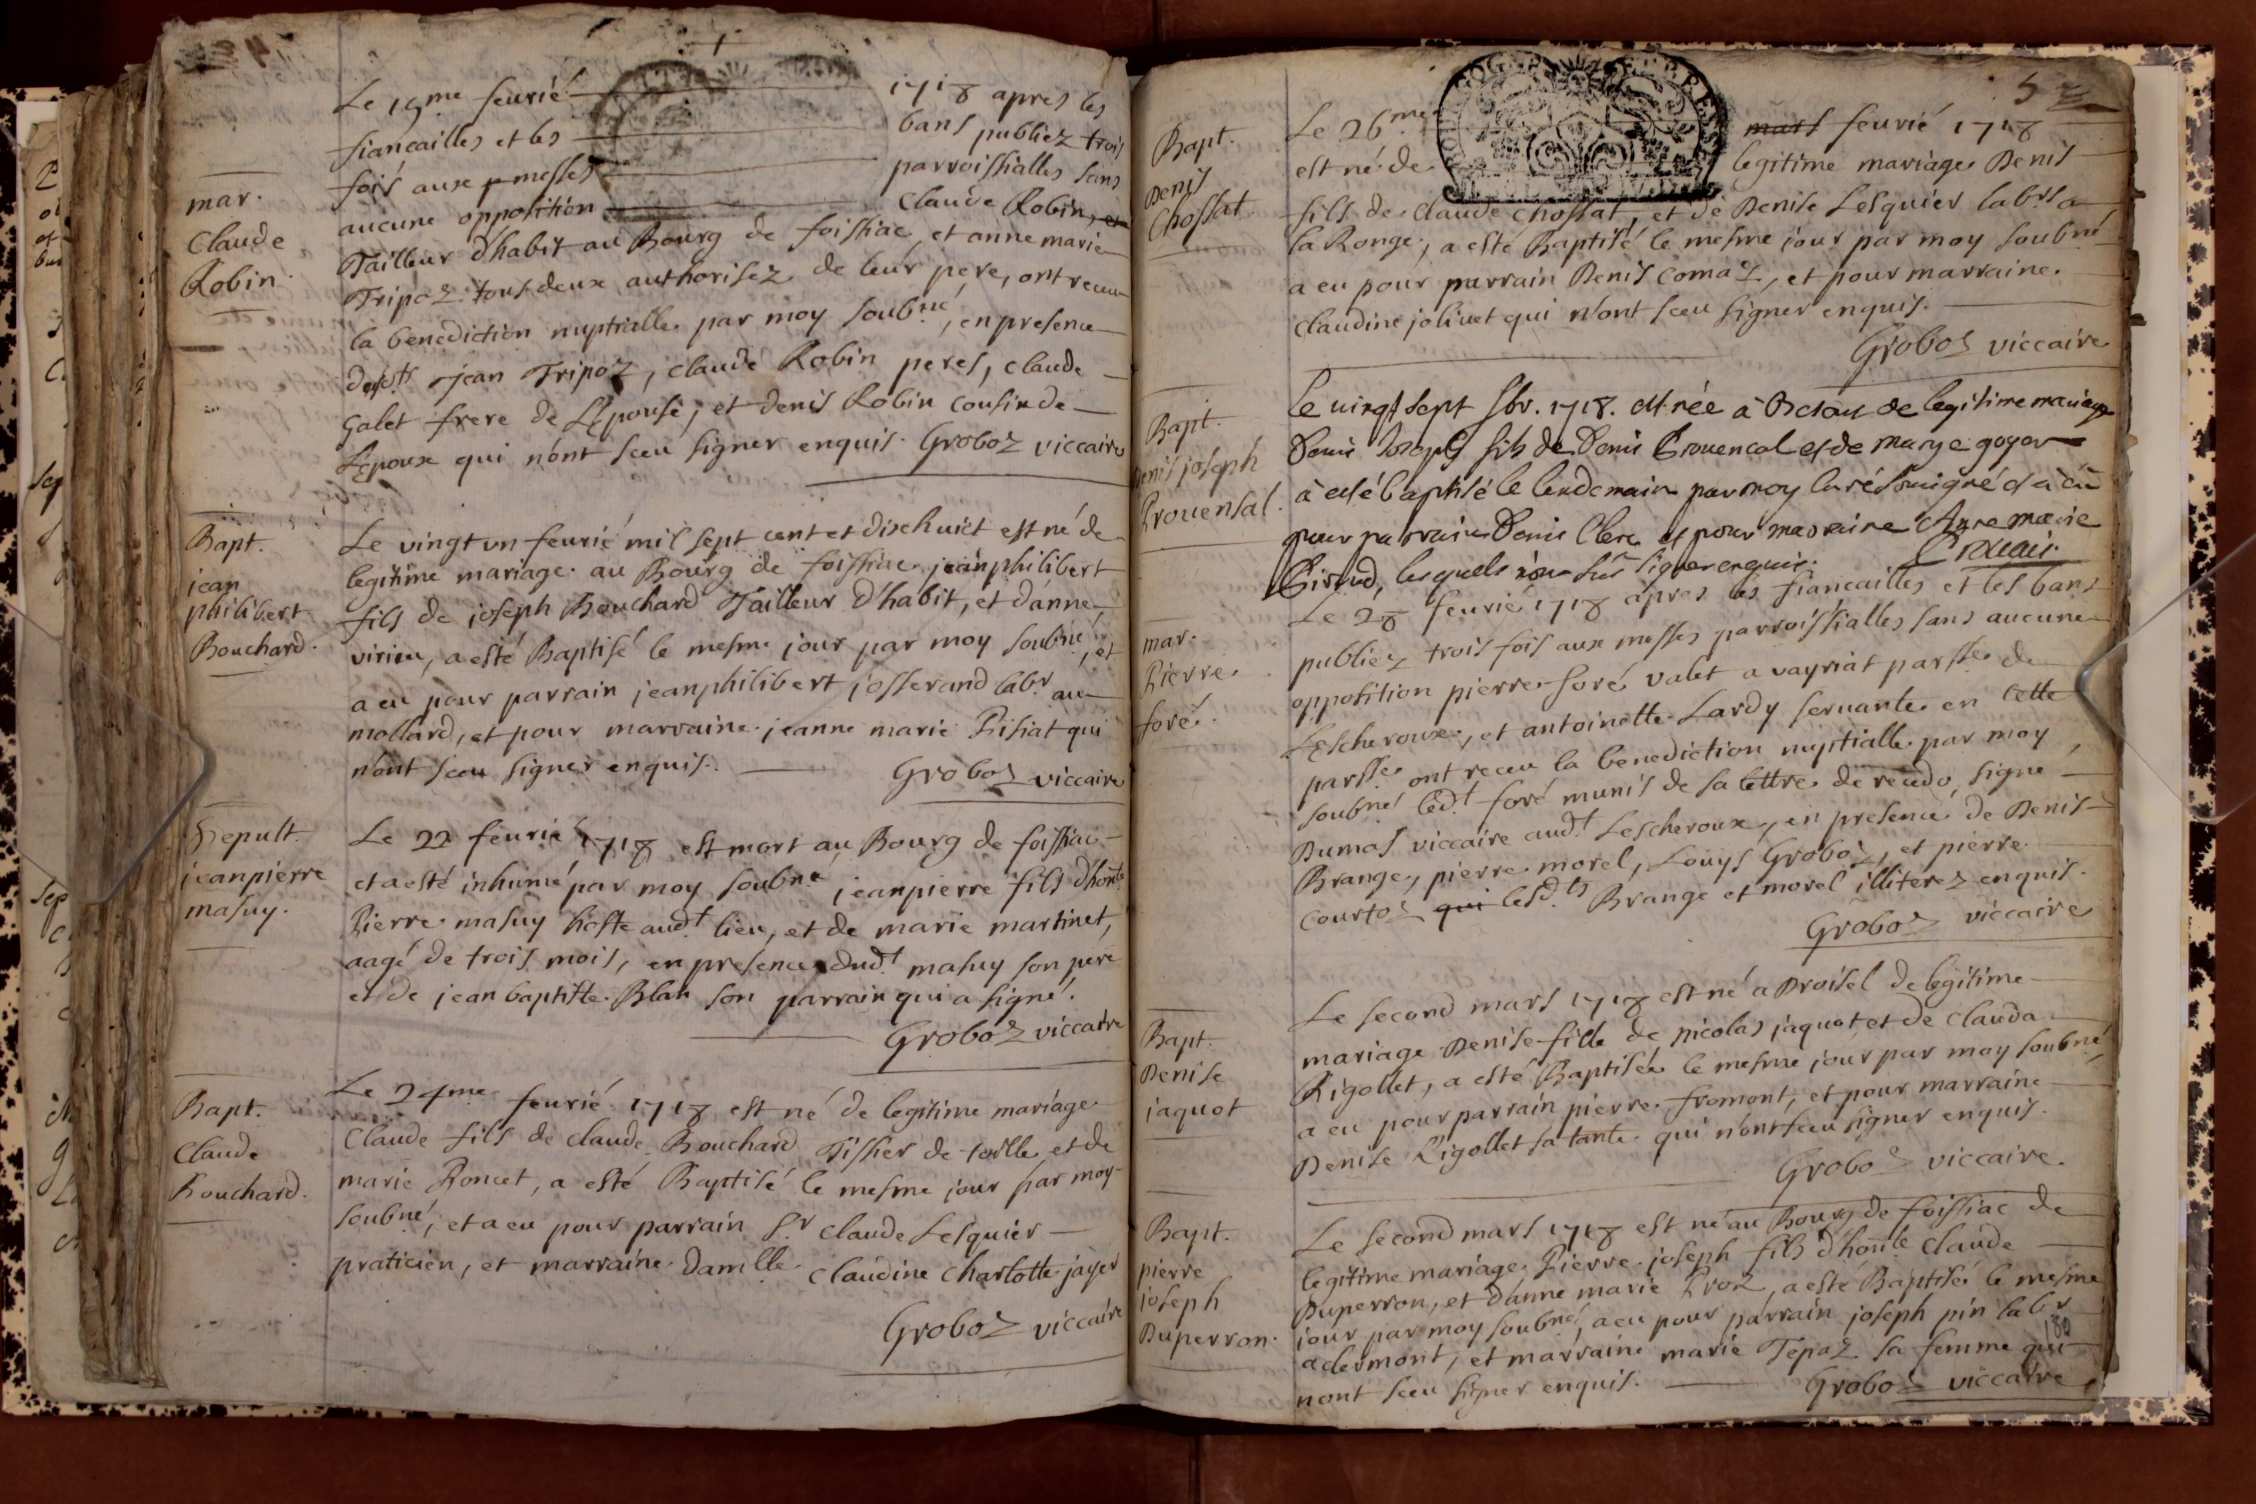 Le 19me feurié 1718 apres les
fiancailles et les bans publiez trois
fois aux messes parroissialles sans
aucune opposition Claude Robin, et
Tailleur d'habit au Bourg de foissiac, et anne marie
Tripoz tous deux authorisez de leur pere, ont receu
la benediction nuptialle par moy soubné, en presence
desdts jean Tripoz, claude Robin peres, claude
galet frere de L'épouse, et denis Robin cousin de
L'époux qui n'ont sceu signer enquis. Groboz viccaire
mar.
Claude
Robin.
Le vingt un feurié mil sept cent et dixhuict est né de
legitime mariage au Bourg de foissiac jeanphilibert
fils de joseph Bouchard Tailleur d'habit, et d'anne
virieu, a esté Baptisé le mesme jour par moy soubné, et
a eu pour parrain jeanphilibert josserand labr au
mollard, et pour marraine jeanne marie Pisiat qui
n'ont sceu signer enquis.
Groboz viccaire
Bapt.
jean
philibert
Bouchard.
Le 22 feurié 1718 est mort au Bourg de foissiac
et a esté inhumé par moy soubné jeanpierre fils d'honte
Pierre masuy hoste audt lieu, et de marie martinet,
aagé de trois mois, en presence dudt masuy son pere
et de jean baptiste Blan son parrain qui a signé.
Groboz viccaire
Sepult.
jeanpierre
masuy.
Le 24me feurié 1718 est né de legitime mariage
Claude fils de claude Bouchard Tissier de toille et de
marie Roncet, a esté Baptisé le mesme jour par moy
soubné, et a eu pour parrain Sr claude Lesquier
praticien, et marraine damlle claudine charlotte jayer
Groboz viccaire
Bapt.
Claude
Bouchard.
52
Le 26me mars feurié 1718
est né de legitime mariage Denis
fils de claude chossat, et de Denise Lesquier labrs a
la Ronge, a esté Baptisé le mesme jour par moy soubné
a eu pour parrain Denis comaz, et pour marraine
claudine jolivet qui n'ont sceu signer enquis.
Groboz viccaire
Bapt.
Denis
Chossat
Le uingt sept fbr. 1718. est née à de legitime mariage
Denis Joseph fils de Denis Prouencal et de marye goyer
à esté baptisé le lendemain par moy curé Souigné et a eu
pour parrain Denis Clerc et pour marraine Anne marie
Giroud, lesquels n'ont sceu signer enquis.
Bapt.
Denis joseph
Prouensal.
Le 28 feurié 1718 apres les fiancailles et les bans
publiez trois fois aux messes parroissialles sans aucune
opposition pierre foré valet a vayriat parsse de
Lescheroux, et antoinette Lardy seruante en cette
parsse ont receu la benediction nuptialle par moy
soubné ledt foré munis de sa lettre de recedo, signe
Dumas viccaire audt Lescheroux, en presence de Denis
Brange, pierre morel, Louys Groboz, et pierre
courtoz qui lesdts Brange et morel illiterez enquis.
Groboz viccaire
mar.
Pierre
foré.
Le second mars 1718 est né a Droisel de legitime
mariage Denise fille de nicolas jaquot, et de clauda
Rigollet, a esté Baptisée le mesme jour par moy soubné,
a eu pour parrain pierre fromont, et pour marraine
Denise Rigollet sa tante qui n'ont sceu signer enquis.
Groboz viccaire.
Bapt.
Denise
jaquot
Le second mars 1718 est né au Bourg de foissiac de
legitime mariage Pierre joseph fils d'honte Claude
Duperron, et d'anne marie Proz, a esté Baptisé le mesme
jour par moy soubné, a eu pour parrain joseph pin labr
a clermont, et marraine marie Tepaz sa femme qui
n'ont sceu signer enquis.
Groboz viccaire
Bapt.
pierre
joseph
Duperron.
180